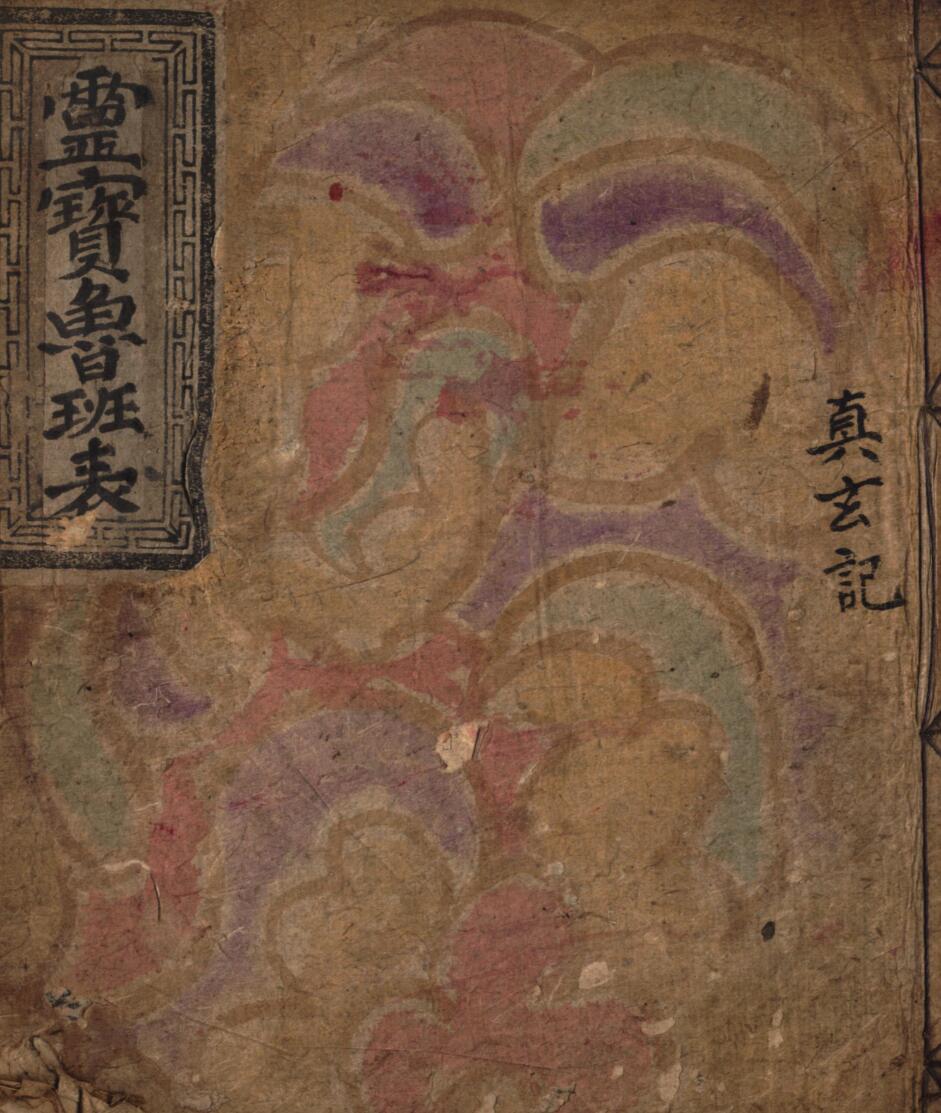 真玄記
靈寶魯班表